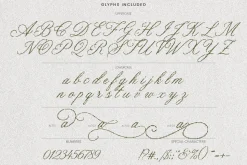 GLYPHS INCLUDED
UPPERCASE
A B C D E F G H I J K L M
N O P Q R S T U V W X Y Z
LOWERCASE
a b c d e f g h i j k l m
n o p q r s t u v w x y z
a a a a
NUMBERS
0123456789
SPECIAL CHARACTERS